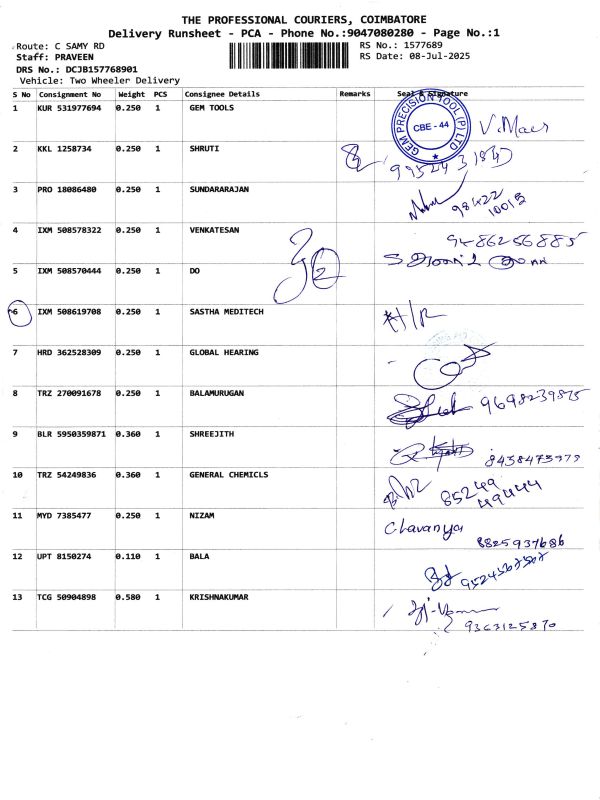 THE PROFESSIONAL COURIERS, COIMBATORE
Delivery Runsheet - PCA - Phone No.:9047080280 - Page No.:1
Route: C SAMY RD RS No.: 1577689
Staff: PRAVEEN RS Date: 08-Jul-2025
DRS No.: DCJB157768901
Vehicle: Two Wheeler Delivery
S No Consignment No Weight PCS Consignee Details Remarks Seal & Signature
1 KUR 531977694 0.250 1 GEM TOOLS
GEM PRECISION TOOL (P) LTD
CBE - 44
2 KKL 1258734 0.250 1 SHRUTI
3 PRO 18086480 0.250 1 SUNDARARAJAN
98422
10013
4 IXM 508578322 0.250 1 VENKATESAN 9486256885
5 IXM 508570444 0.250 1 DO
6 IXM 508619708 0.250 1 SASTHA MEDITECH
7 HRD 362528309 0.250 1 GLOBAL HEARING
8 TRZ 270091678 0.250 1 BALAMURUGAN 9698239875
9 BLR 5950359871 0.360 1 SHREEJITH 8438473979
10 TRZ 54249836 0.360 1 GENERAL CHEMICLS 85249
49444
11 MYD 7385477 0.250 1 NIZAM Clavanya
8825937686
12 UPT 8150274 0.110 1 BALA
13 TCG 50904898 0.580 1 KRISHNAKUMAR
9363125870